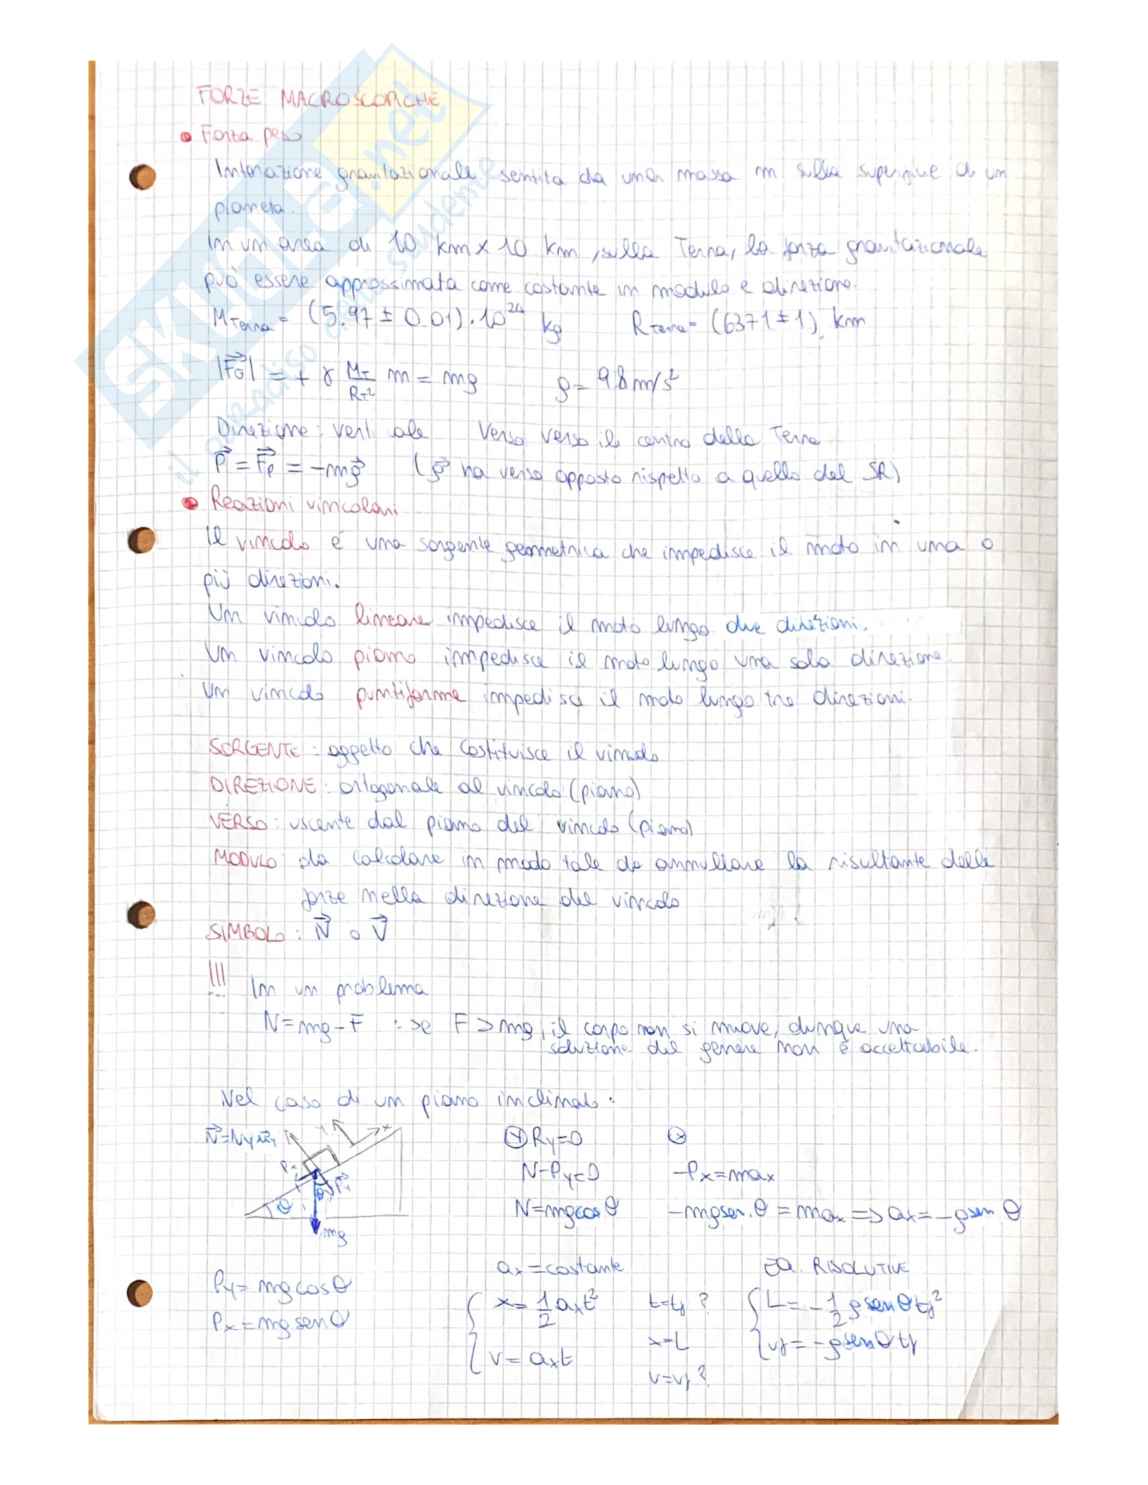 FORZE MACROSCOPICHE
• Forza peso
Interazione gravitazionale sentita da una massa m sulla superficie di un
pianeta.
In un area di 10 km x 10 km, sulla Terra, la forza gravitazionale
può essere approssimata come costante in modulo e direzione.
M Terra = (5.97 ± 0.01)·10^24 kg R Terra = (6371 ± 1) km
|F⃗G| = + γ MT/RT² m = mg g = 9.8 m/s²
Direzione: verticale Verso verso il centro della Terra
P⃗ = F⃗p = -mg⃗ (g⃗ ha verso opposto rispetto a quello del SR)
• Reazioni vincolari
Il vincolo è una sorgente geometrica che impedisce il moto in una o
più direzioni.
Un vincolo lineare impedisce il moto lungo due direzioni.
Un vincolo piano impedisce il moto lungo una sola direzione
Un vincolo puntiforme impedisce il moto lungo tre direzioni.
SORGENTE: oggetto che costituisce il vincolo
DIREZIONE: ortogonale al vincolo (piano)
VERSO: uscente dal piano del vincolo (piano)
MODULO: da calcolare in modo tale da annullare la risultante delle
forze nella direzione del vincolo
SIMBOLO: N⃗ o V⃗
!!! In un problema
N = mg - F : se F > mg, il corpo non si muove, dunque una
soluzione del genere non è accettabile.
Nel caso di un piano inclinato:
N⃗=Ny y x θ θ mg
Ⓨ Ry=0 ⓧ
N-Py=0 -Px=max
N=mgcosθ -mgsenθ = max => ax = -gsenθ
Py = mgcosθ
Px = mgsenθ
ax = costante EQ. RISOLUTIVE
{ x = 1/2 axt² t=tf ? { L = -1/2 gsenθ tf²
x=L
{ v = axt v=vf ? { vf = -gsenθ tf
SKUOLA.net
il paradiso dello studente